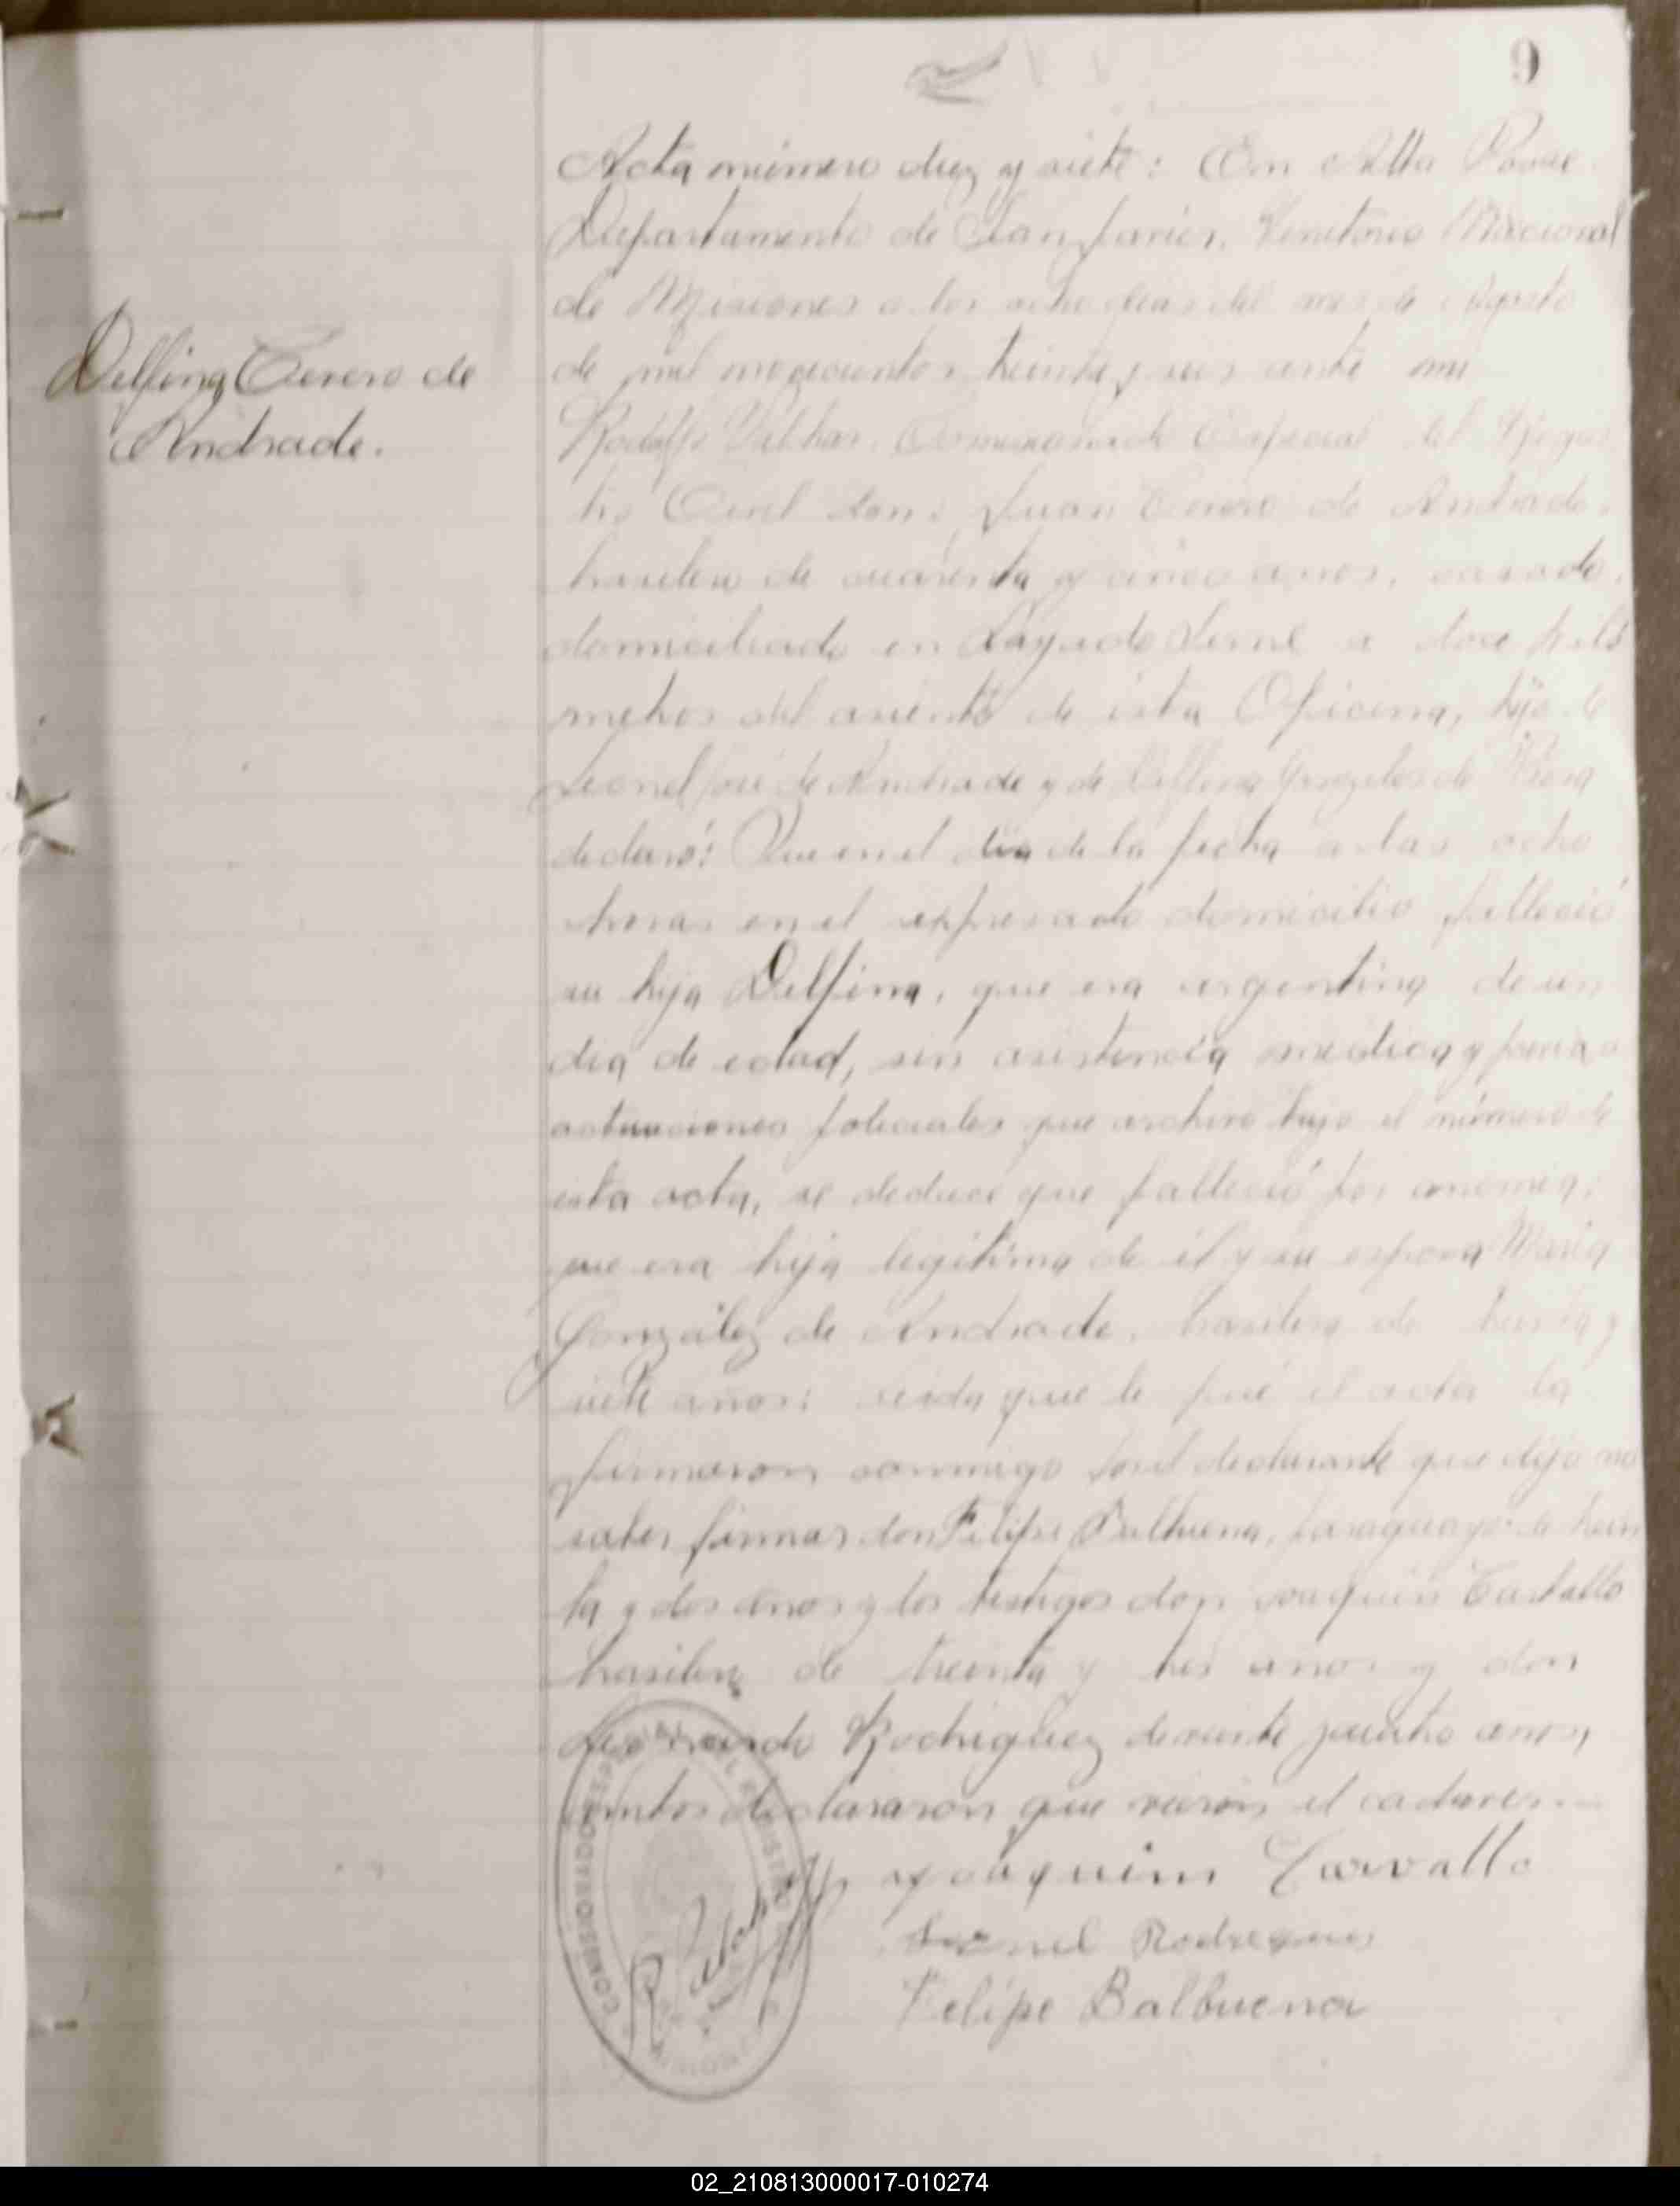 9
Acta número diez y siete: En Alta
Departamento de San Javier, Territorio Nacional
de Misiones a los ocho dias del mes de Agosto
de mil novecientos treinta y seis ante mi
Delfina Cerero de
Andrade.
Rodolfo Comisionado Especial del Regis
tro Civil don: Juan Cerero de Andrade,
brasilero de cuarenta y cinco anos, casado,
domiciliado en a doce kiló
metros del asiento de ésta Oficina, hijo de
Leonel José de Andrade y de Delfina de
declaró: Que en el día de la fecha a las ocho
horas en el expresado domicilio falleció
su hija Delfina, que era argentina de un
dia de edad, sin asistencia medica y
actuaciones policiales que archivo bajo el número de
esta acta, se deduce que falleció por anemia;
que era hija legítima de él y su esposa Maria
González de Andrade, brasilera de treinta y
siete años: Leida que le fué el acta la
firmaron conmigo por el declarante que dijo no
saber firmar don Felipe Balbuena, paraguayo de trein
ta y dos anos y los testigos don Joaquin
brasilero de treinta y tres anos y don
Rodriguez de veinte y cuatro anos,
ambos declararon que vieron el cadaver.
Joaquim Carvallo
Leonel Rodrigues
Felipe Balbuena
COMISIONADO ESPECIAL DEL REGISTRO
MISIONES
02_210813000017-010274